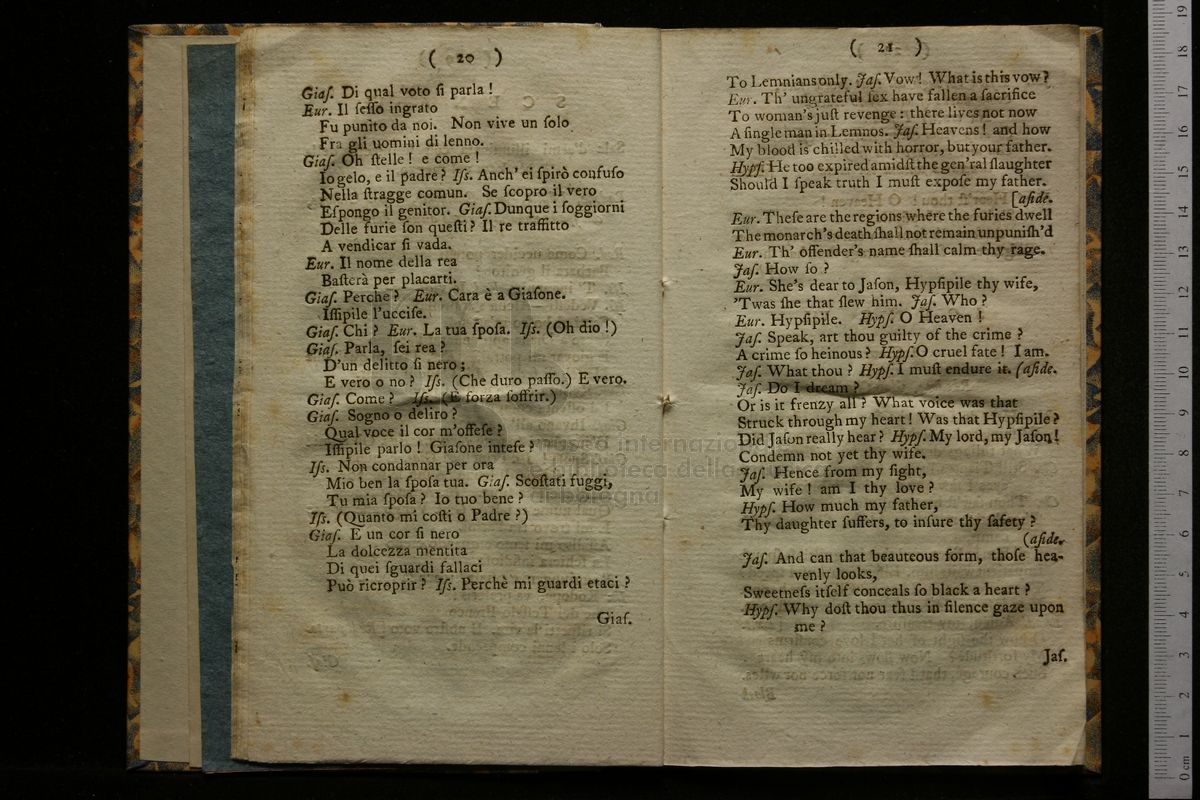 ( 20 )
Giaſ. Di qual voto ſi parla !
Eur. Il ſeſſo ingrato
Fu punito da noi. Non vive un ſolo
Fra gli uomini di lenno.
Giaſ. Oh ſtelle ! e come !
Io gelo, e il padre ? Iſs. Anch' ei ſpirò confuſo
Nella ſtragge comun. Se ſcopro il vero
Eſpongo il genitor. Giaſ. Dunque i ſoggiorni
Delle furie ſon queſti ? Il re traffitto
A vendicar ſi vada.
Eur. Il nome della rea
Baſterà per placarti.
Giaſ. Perche ? Eur. Cara è a Giaſone.
Iſſipile l'ucciſe.
Giaſ. Chi ? Eur. La tua ſpoſa. Iſs. (Oh dio !)
Giaſ. Parla, ſei rea ?
D'un delitto ſi nero ;
E vero o no ? Iſs. (Che duro paſſo.) E vero.
Giaſ. Come ? Iſs. (E forza ſoffrir.)
Giaſ. Sogno o deliro ?
Qual voce il cor m'offeſe ?
Iſſipile parlo ! Giaſone inteſe ?
Iſs. Non condannar per ora
Mio ben la ſpoſa tua. Giaſ. Scoſtati fuggi,
Tu mia ſpoſa ? Io tuo bene ?
Iſs. (Quanto mi coſti o Padre ?)
Giaſ. E un cor ſi nero
La dolcezza mentita
Di quei ſguardi fallaci
Può ricroprir ? Iſs. Perchè mi guardi etaci ?
Giaſ.
( 21 )
To Lemnians only. Jaſ. Vow ! What is this vow ?
Eur. Th' ungrateful ſex have fallen a ſacrifice
To woman's juſt revenge : there lives not now
A ſingle man in Lemnos. Jaſ. Heavens ! and how
My blood is chilled with horror, but your father.
Hypſ. He too expired amidſt the gen'ral ſlaughter
Should I ſpeak truth I muſt expoſe my father.
[aſide.
Eur. Theſe are the regions where the furies dwell
The monarch's death ſhall not remain unpuniſh'd
Eur. Th' offender's name ſhall calm thy rage.
Jaſ. How ſo ?
Eur. She's dear to Jaſon, Hypſipile thy wife,
'Twas ſhe that ſlew him. Jaſ. Who ?
Eur. Hypſipile. Hypſ. O Heaven !
Jaſ. Speak, art thou guilty of the crime ?
A crime ſo heinous ? Hypſ. O cruel fate ! I am.
Jaſ. What thou ? Hypſ. I muſt endure it. (aſide.
Jaſ. Do I dream ?
Or is it frenzy all ? What voice was that
Struck through my heart ! Was that Hypſipile ?
Did Jaſon really hear ? Hypſ. My lord, my Jaſon !
Condemn not yet thy wife.
Jaſ. Hence from my ſight,
My wife ! am I thy love ?
Hypſ. How much my father,
Thy daughter ſuffers, to inſure thy ſafety ?
(aſide.
Jaſ. And can that beauteous form, thoſe hea-
venly looks,
Sweetneſs itſelf conceals ſo black a heart ?
Hypſ. Why doſt thou thus in ſilence gaze upon
me ?
Jaſ.
museo internazio
biblioteca della
di bologna
0 cm 1 2 3 4 5 6 7 8 9 10 11 12 13 14 15 16 17 18 19